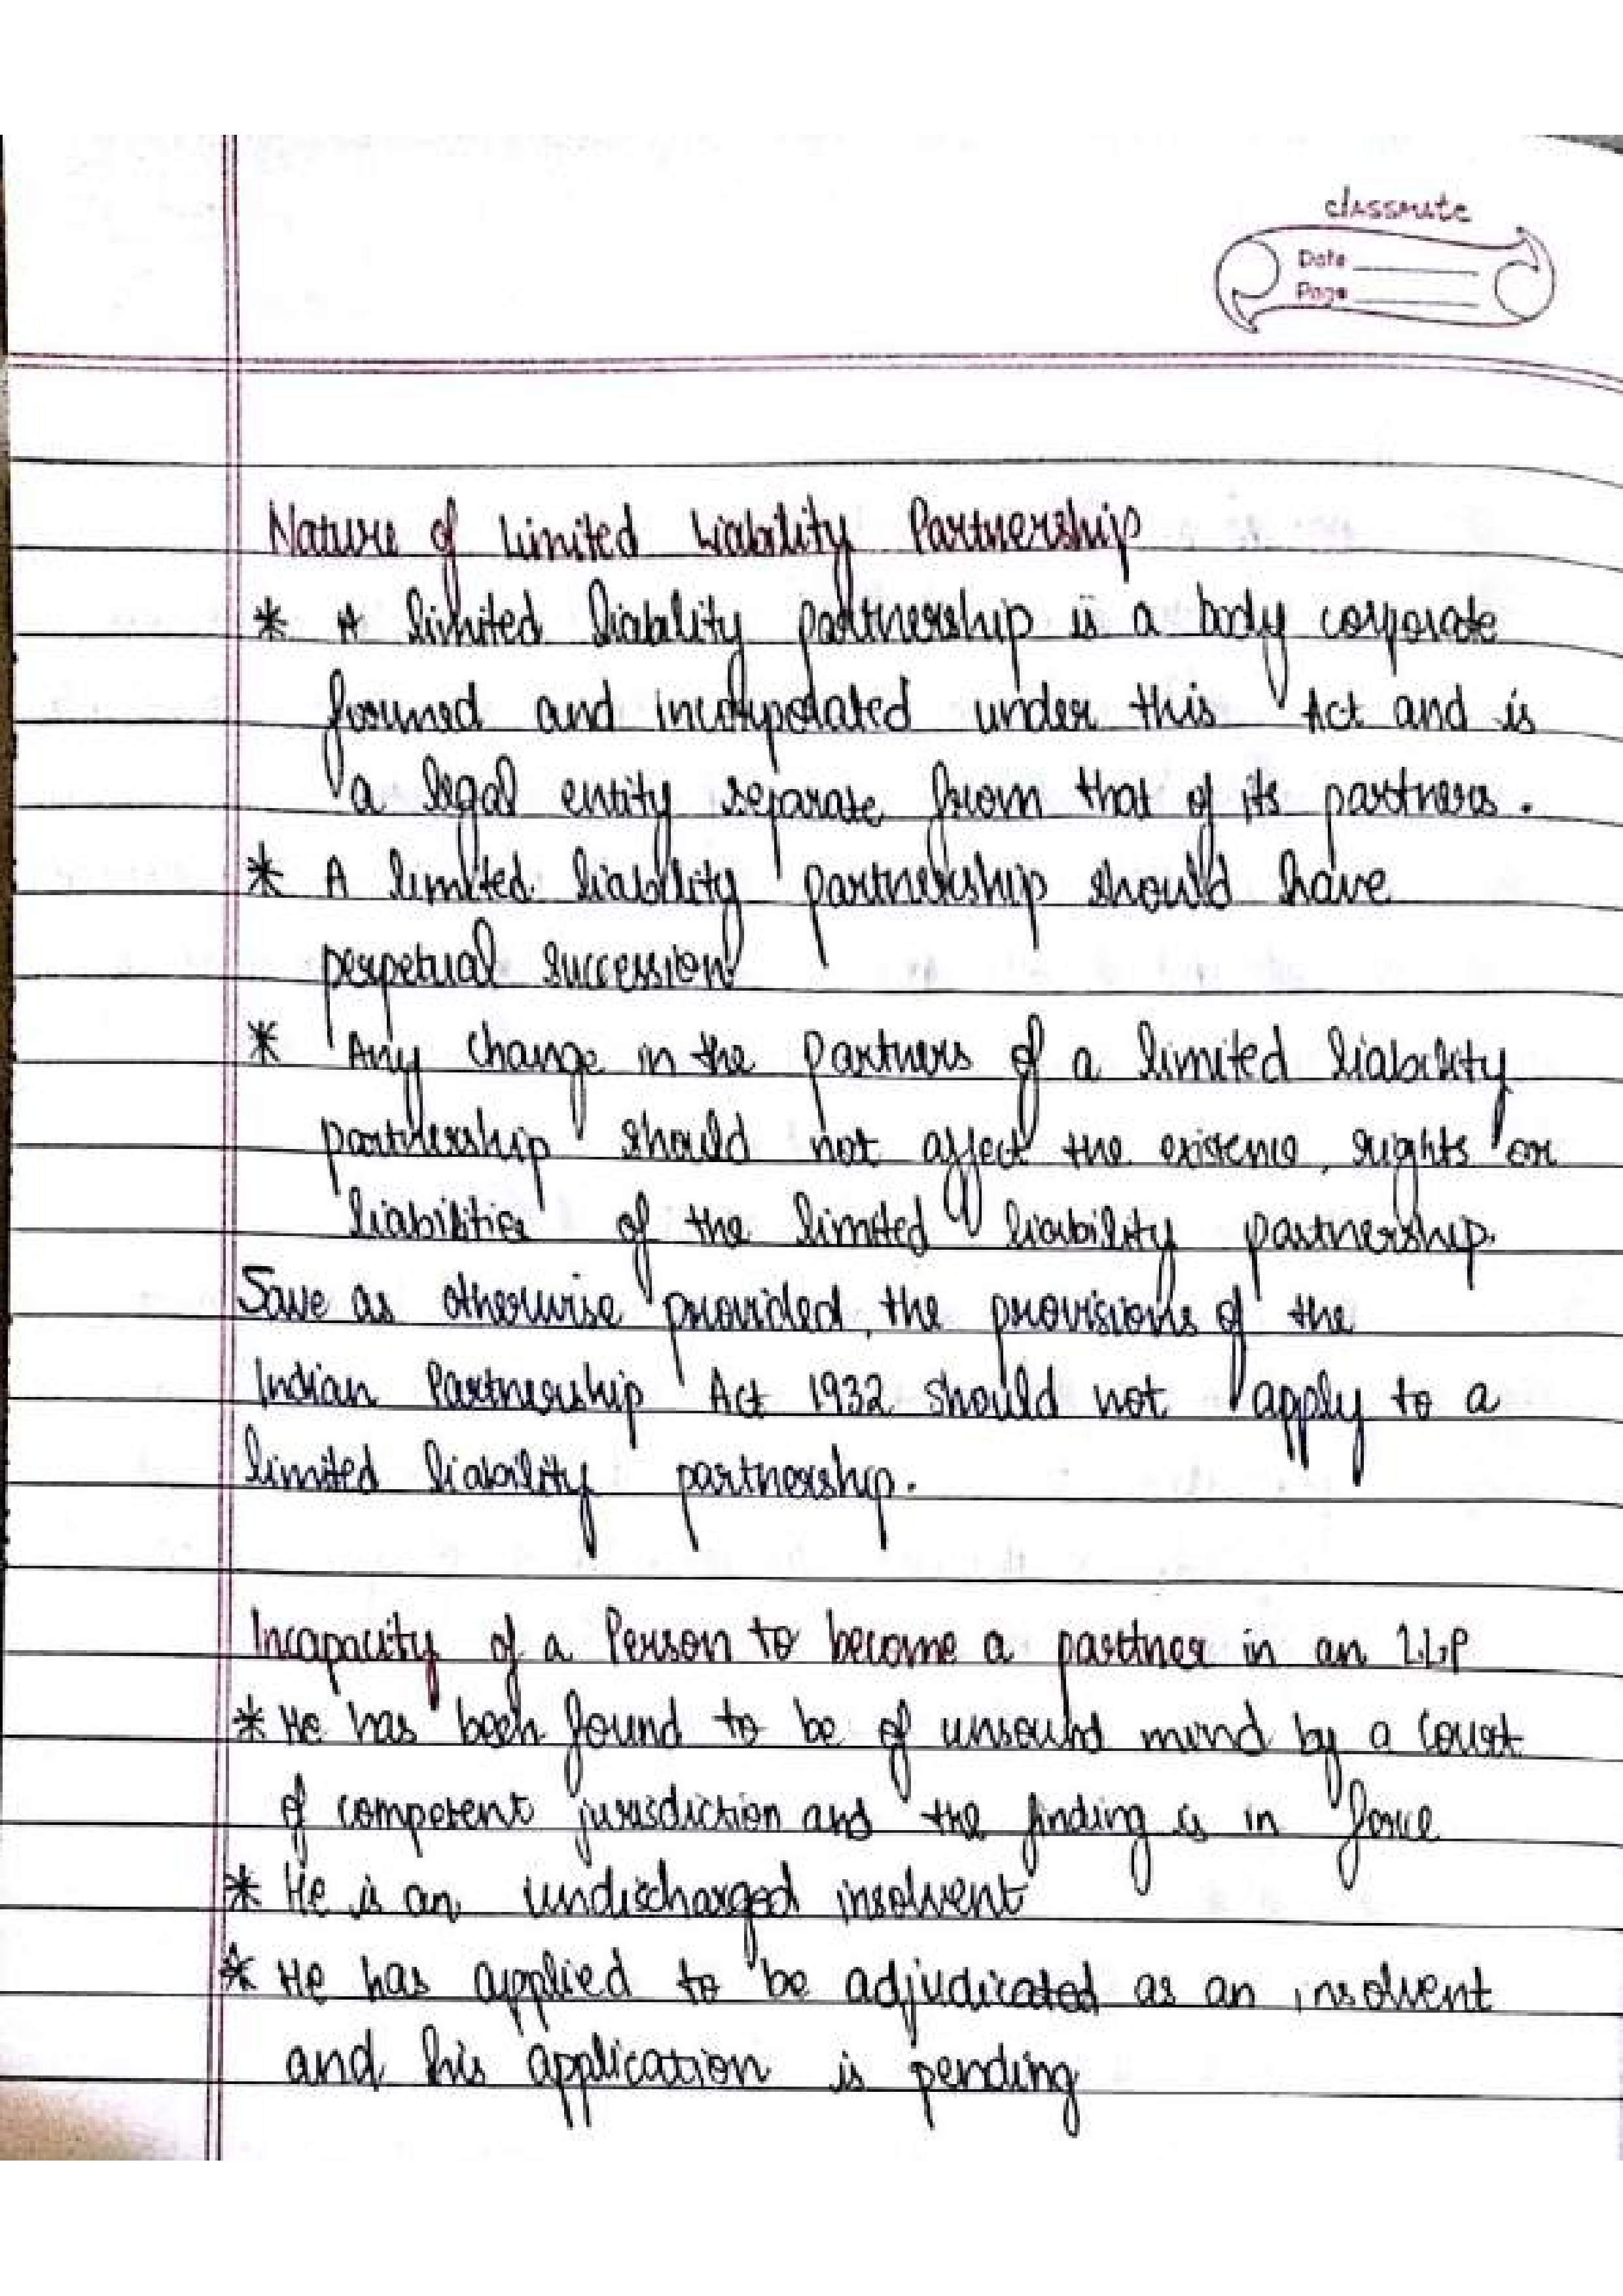 classmate
Date
Page
Nature of Limited Liability Partnership
* A limited liability partnership is a body corporate
formed and incorporated under this Act and is
a legal entity separate from that of its partners.
* A limited liability partnership should have
perpetual succession
* Any change in the partners of a limited liability
partnership should not affect the existence, rights or
liabilities of the limited liability partnership.
Save as otherwise provided, the provisions of the
Indian Partnership Act 1932 should not apply to a
limited liability partnership.
Incapacity of a Person to become a partner in an LLP
* He has been found to be of unsound mind by a Court
of competent jurisdiction and the finding is in force
* He is an undischarged insolvent
* He has applied to be adjudicated as an insolvent
and his application is pending